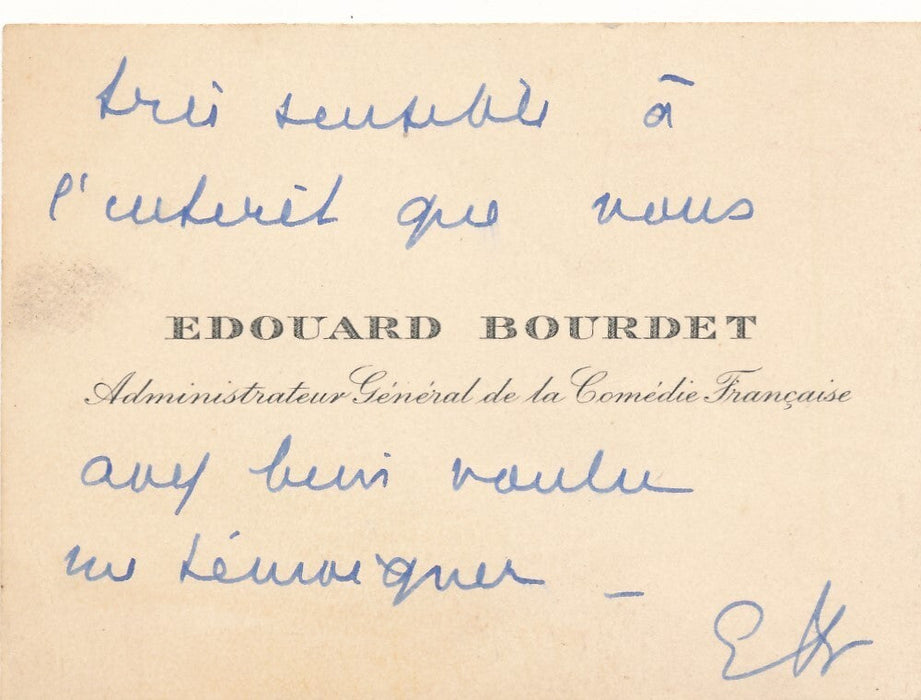 très sensible à
l'intérêt que vous
EDOUARD BOURDET
Administrateur Général de la Comédie Française
avez bien voulu
me témoigner _